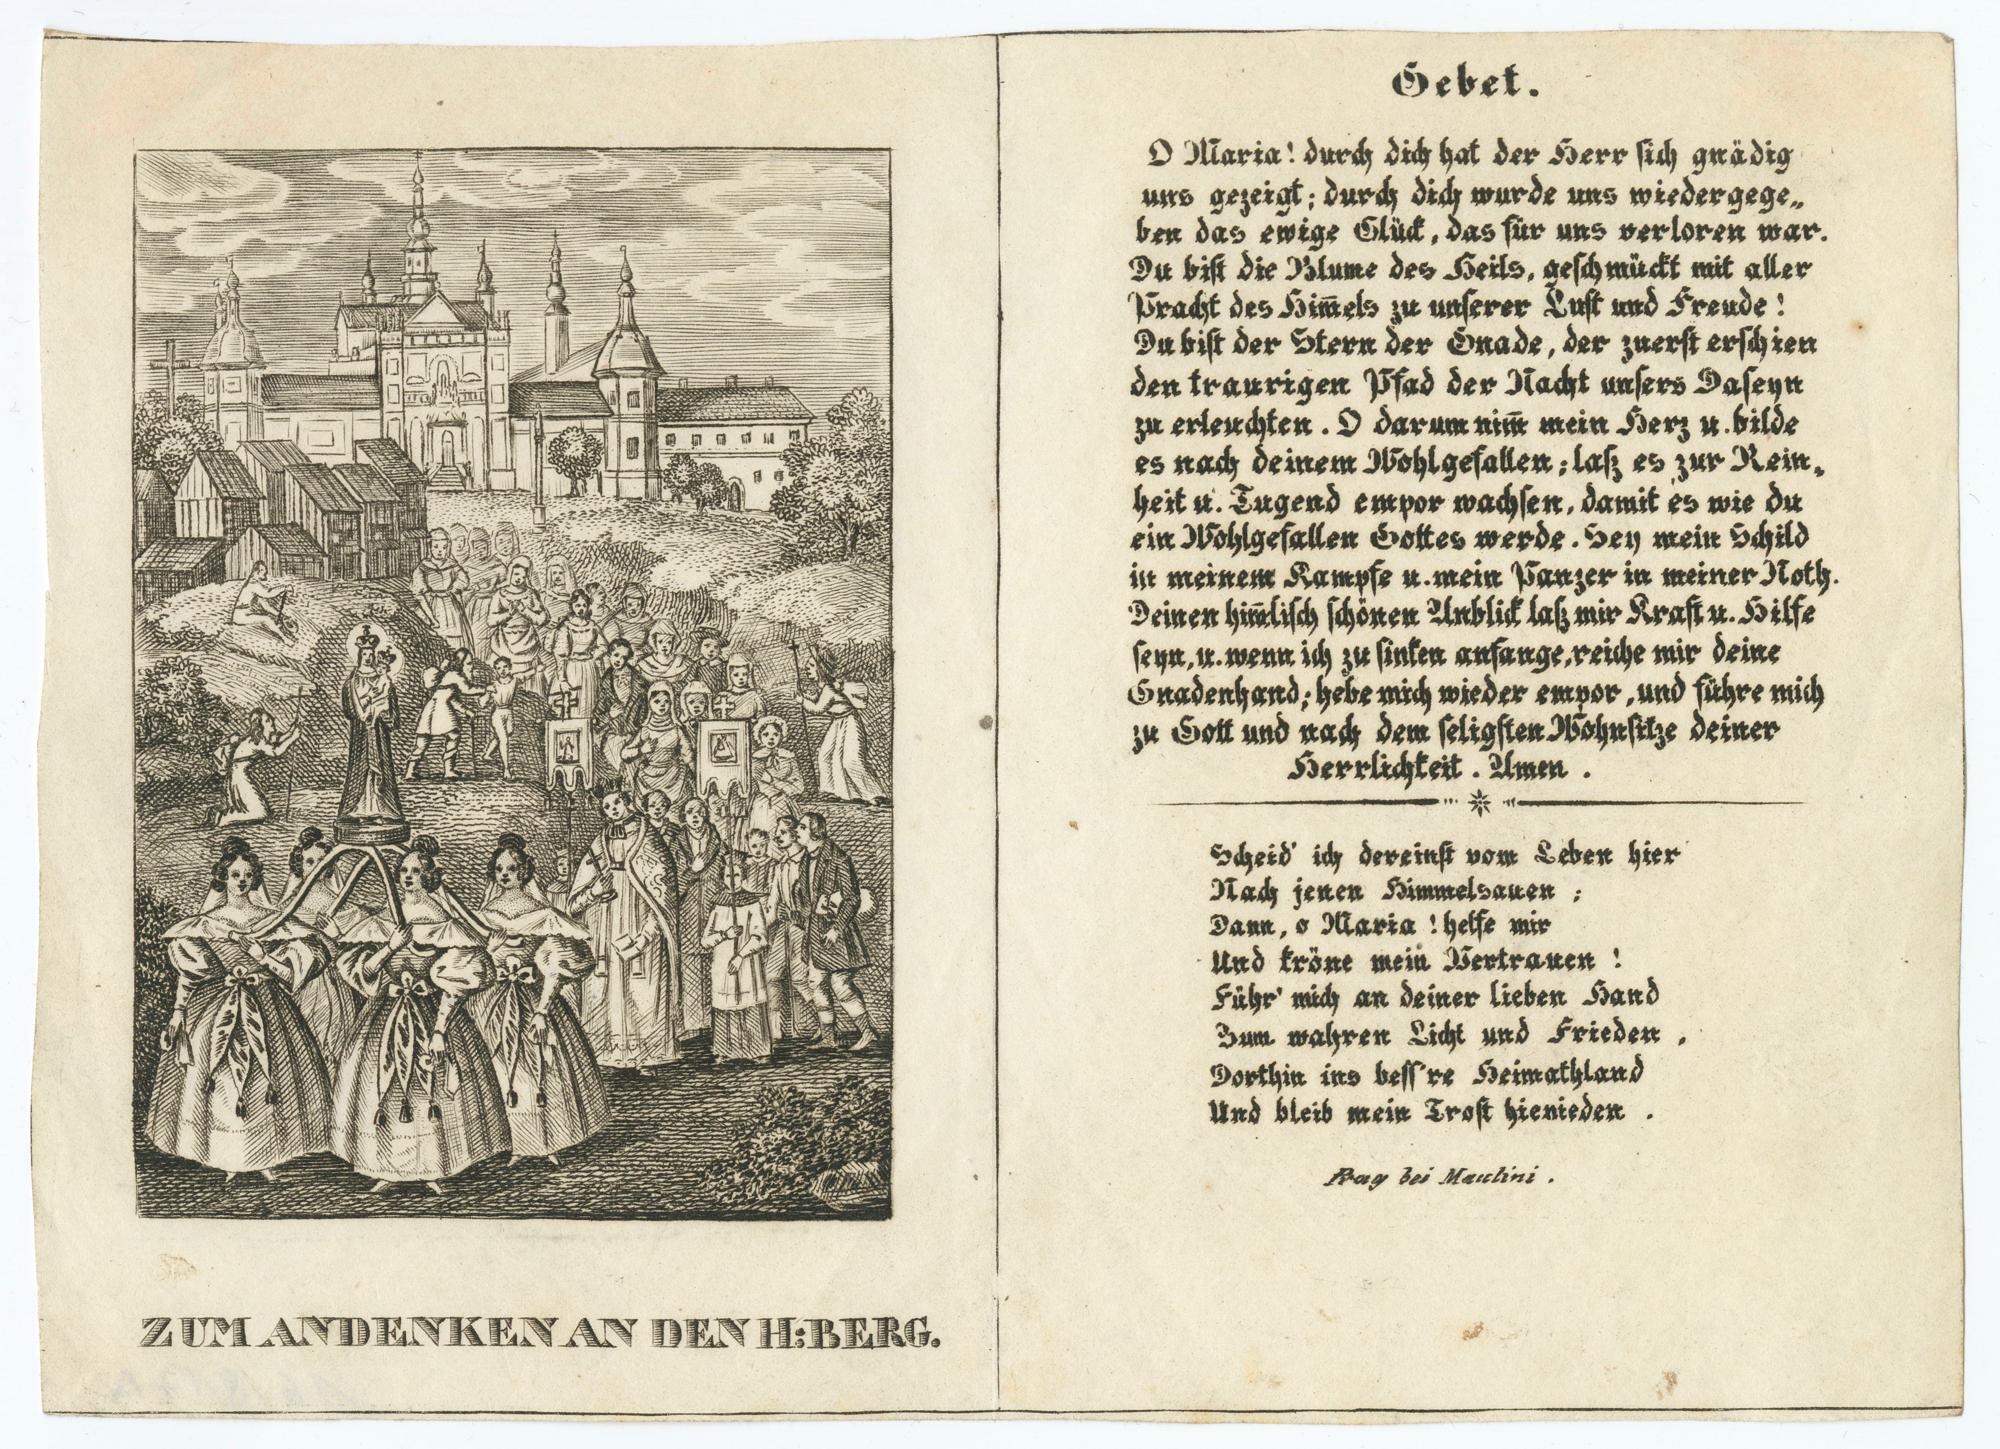 ZUM ANDENKEN AN DEN H:BERG.
Gebet.
O Maria! durch dich hat der Herr sich gnädig
uns gezeigt; durch dich wurde uns wiedergege„
ben das ewige Glück, das für uns verloren war.
Du bist die Blume des Heils, geschmückt mit aller
Pracht des Him̅els zu unserer Lust und Freude!
Du bist der Stern der Gnade, der zuerst erschien
den traurigen Pfad der Nacht unsers Daseyn
zu erleuchten. O darum nim̅ mein Herz u. bilde
es nach deinem Wohlgefallen; laß es zur Rein„
heit u. Tugend empor wachsen, damit es wie du
ein Wohlgefallen Gottes werde. Sey mein Schild
in meinem Kampfe u. mein Panzer in meiner Noth.
Deinen him̅lisch schönen Anblick laß mir Kraft u. Hilfe
seyn, u. wenn ich zu sinken anfange, reiche mir deine
Gnadenhand; hebe mich wieder empor, und führe mich
zu Gott und nach dem seligsten Wohnsitze deiner
Herrlichkeit. Amen.
Scheid' ich dereinst vom Leben hier
Nach jenen Himmelsauen;
Dann, o Maria! helfe mir
Und kröne mein Vertrauen!
Führ' mich an deiner lieben Hand
Zum wahren Licht und Frieden,
Dorthin ins bess're Heimathland
Und bleib mein Trost hienieden.
Prag bei Maulini.